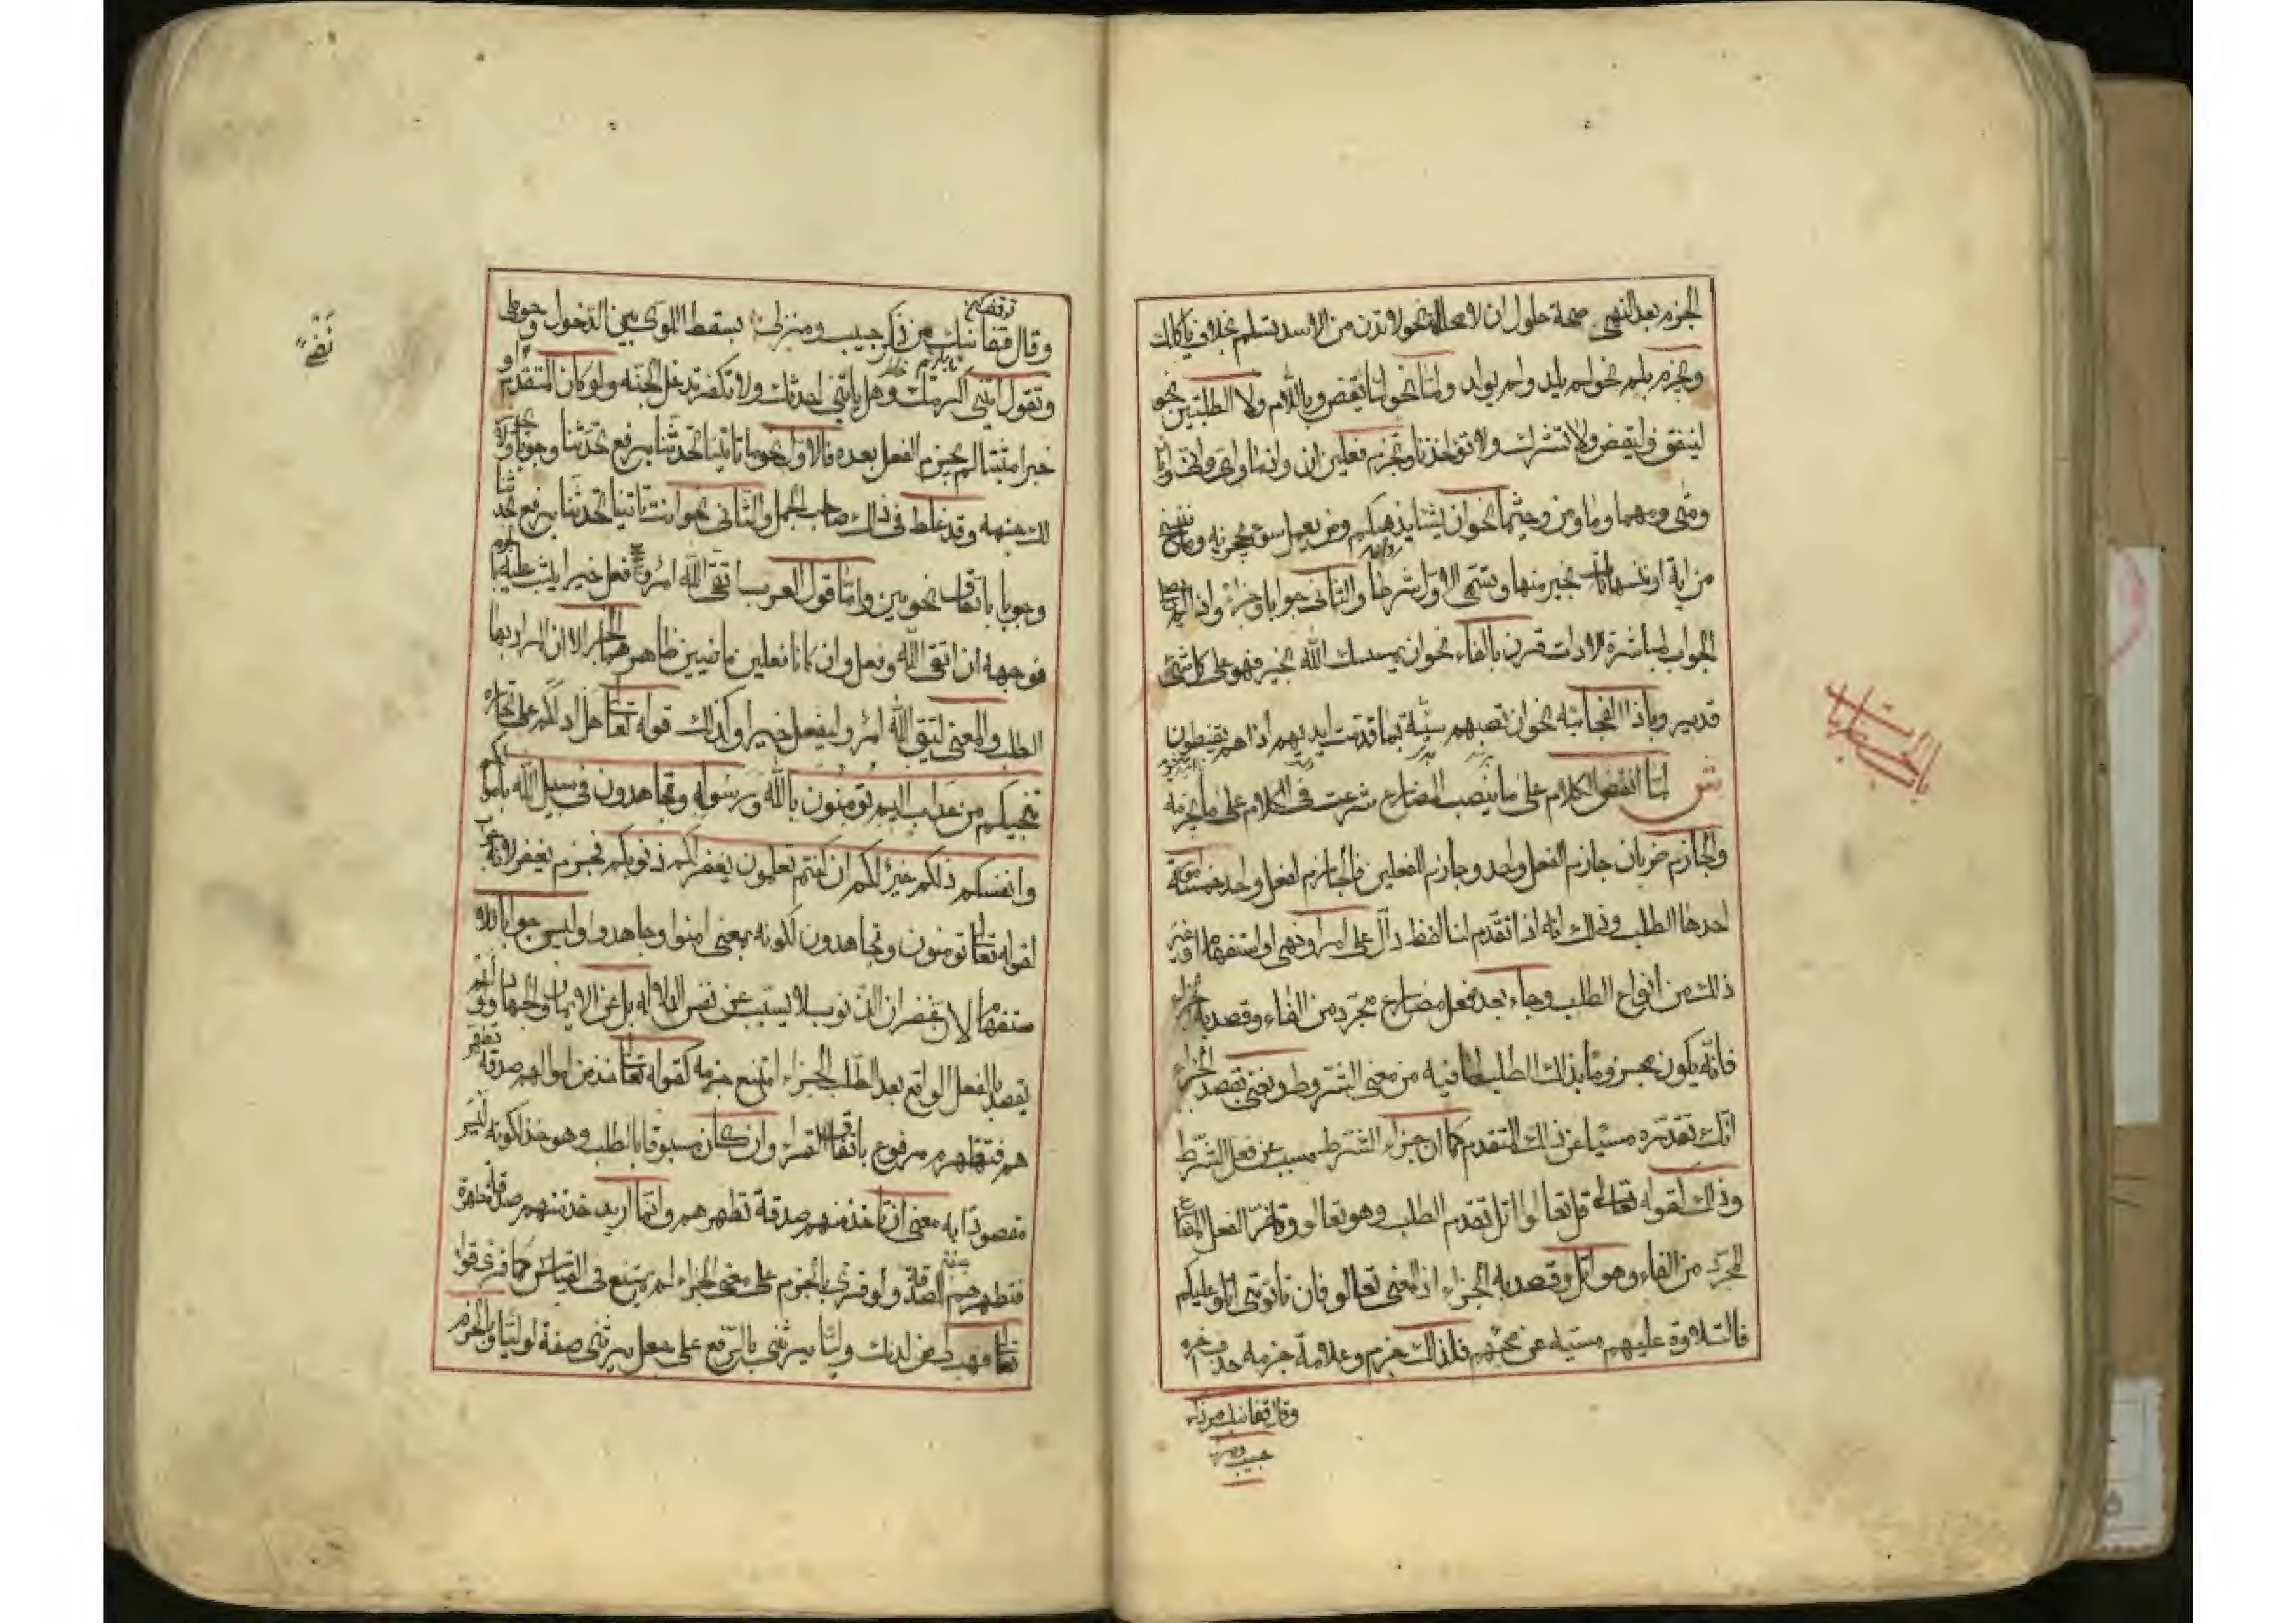 الجزم بعد النهى صحة حلول ان لا محله نحو لا تدن من الاسد تسلم بخلاف ياكلك
ويجزم بلم نحو لم يلد ولم يولد ولما نحو لما يقض وباللام ولا الطلبتين نحو
لينفق وليقض ولا تشرك ولا تؤاخذنا ويجزم فعلين ان واذما واى واين وانى
ومتى ومهما وما ومن وحيثما نحو ان يشا يذهبكم ومن يعمل سوء يجز به وما ننسخ
من اية او ننسها نات بخير منها ويسمى الاول شرطا والثانى جوابا وجزاء واذا لم يصلح
الجواب لمباشرة الادات قرن بالفاء نحو ان يمسسك الله بخير فهو على كل شئ
قدير وباذا الفجائيه نحو ان تصبهم سيئة بما قدمت ايديهم اذا هم يقنطون
ش لما انقض الكلام على ما ينصب المضارع شرعت فى الكلام على ما يجزمه
والجازم ضربان جازم لفعل واحد وجازم لفعلين فالجازم لفعل واحد خمسة امور
احدها الطلب وذلك انه اذا تقدم لنا لفظ دال على امر او نهى او استفهام او غير
ذلك من انواع الطلب وجاء بعده فعل مضارع مجرد من الفاء وقصد به الجزاء
فانه يكون مجزوما بذلك الطلب لما فيه من معنى الشروط ونعنى بقصد الجزاء
انك تقدره مسببا عن ذلك المتقدم كما ان جزاء الشرط مسبب عن فعل الشرط
وذلك لقوله تعالى قل تعالوا اتل تقدم الطلب وهو تعالو وتاخر الفعل المضارع
المجرد من الفاء وهو اتل وقصد به الجزاء اذ المعنى تعالو فان تاتو تى اتلو عليكم
فالتلاوة عليهم مسببه عن مجيئهم فلذلك جزم وعلامة جزمه حذف اخره
وقال قفا نبك من ذكر
حبيب ومنزل
وقال قفا نبك من ذكر حبيب ومنزل بسقط اللوى بين الدخول وحومل
وتقول ائتنى اكرمك وهل ياتنى احدثك ولا تكفر تدخل الجنه ولو كان المتقدم نفيا او
خبرا مثبتا لم يجزم الفعل بعده فالاول نحو ما تاتينا تحدثنا برفع تحدثنا وجوبا ولا يجوز
لك جزمه وقد غلط فى ذلك صاحب الجمل والثانى نحو انت تاتينا تحدثنا برفع تحدثنا
وجوبا باتفاق نحويين واما قول العرب اتقى الله امرؤ فعل خيرا يثب عليه بالجزم
فوجهه ان اتقى الله وفعل وان كانا فعلين ماضيين ظاهرهما الخبر الا ان المراد بها
الطلب والمعنى ليتق الله امرؤ وليفعل خيرا وكذلك قوله تعالى هل ادلكم على تجارة
تنجيكم من عذاب اليم تؤمنون بالله ورسوله وتجاهدون فى سبيل الله باموالكم
وانفسكم ذلكم خير لكم ان كنتم تعلمون يغفر لكم ذنوبكم فجزم يغفر لانه جواب
لقوله تعالى تومنون وتجاهدون لكونه بمعنى امنوا وجاهدوا وليس جوابا للا
ستفهام لان غفران الذنوب لا يتسبب عن نفس الدلاله بل عن الايمان والجهاد ولو لم
يقصد بالفعل الواقع بعد الطلب الجزاء امتنع جزمه كقوله تعالى خذ من اموالهم صدقة تطهر
هم فتطهرهم مرفوع باتفاق القراء وان كان مسبوقا بالطلب وهو خذ لكونه ليس
مقصودا به معنى ان تاخذ منهم صدقة تطهرهم وانما اريد خذ منهم صدقة مطهرة
فتطهرهم صفة لصدقة ولو قرئ بالجزم على معنى الجزاء لم يمتنع فى القياس كما قرئ قوله
تعالى فهب لى من لدنك وليا يرثنى بالرفع على جعل يرثنى صفة لوليا وبالجزم